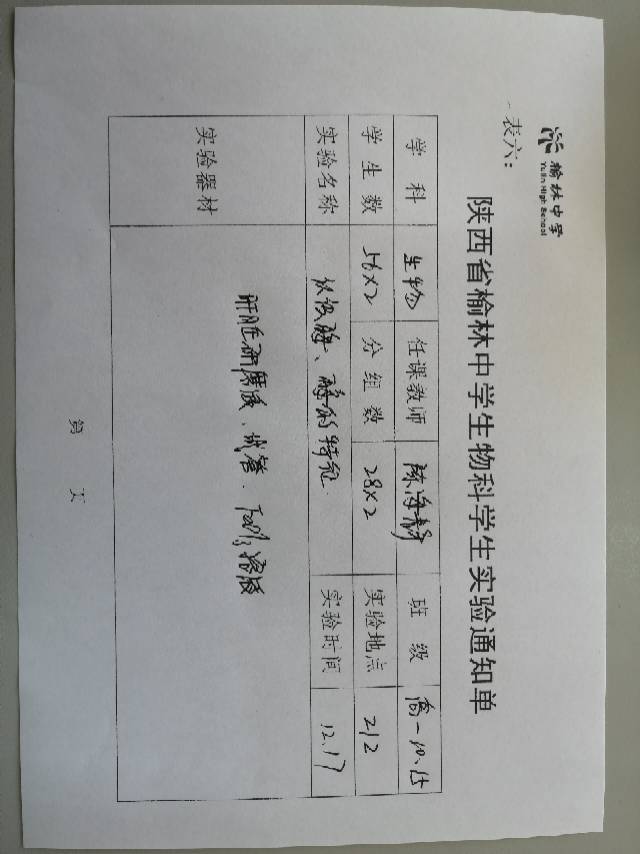 榆林中学
Yulin High School
表六：
陕西省榆林中学生物科学生实验通知单
学 科 生物 任课教师 陈海 班 级 高一10.15
学 生 数 56×2 分 组 数 28×2 实验地点 212
实验名称 酶、酶的特征 实验时间 12.17
实验器材 肝脏研磨液、试管、FeCl3溶液
第 页